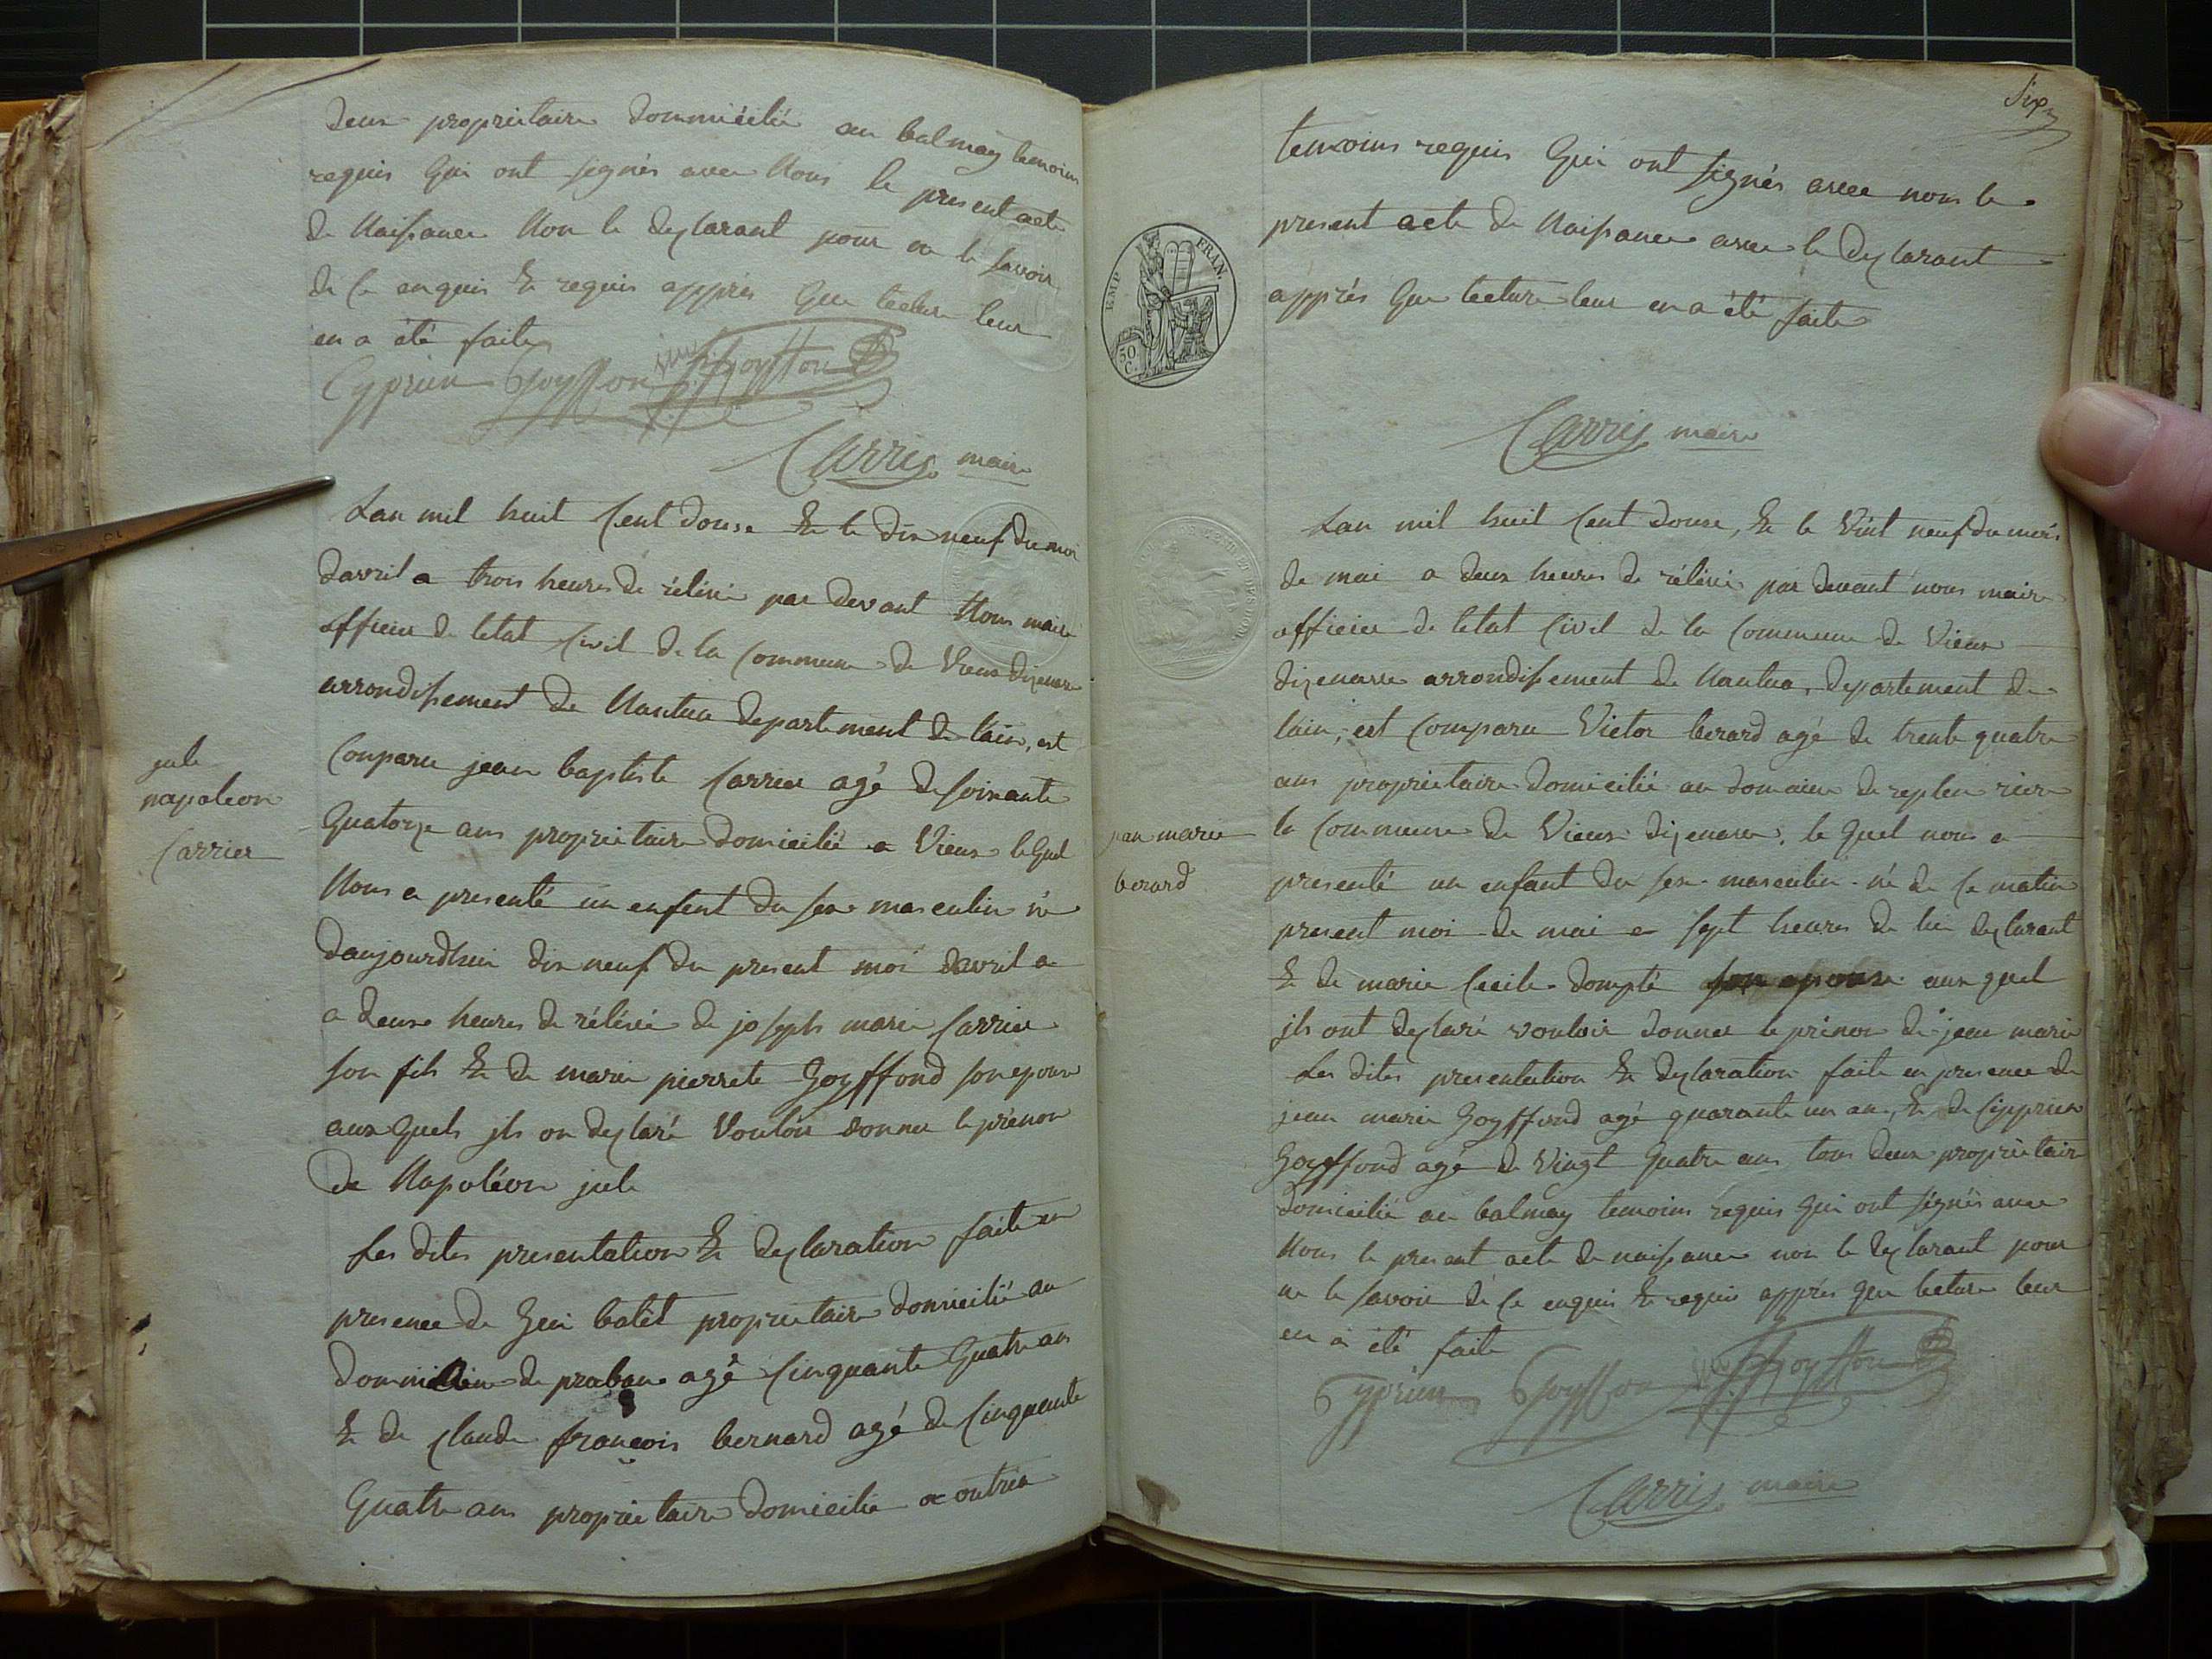 deux proprietaire dommicilié au balmay temoins
requis Qui ont signés avec Nous le present acte
de Naissance Non le declarant pour ne le savoir
de ce enquis & requis apprés Que lecture leur
en a été faite
Cyprien Goyffon J M Goyffon
Carrier maire
Lan mil huit Cent douse & le dix neuf du moi
davril a trois heures de rélévé par devant Nous maire
officier de létat Civil de la Commune de Vieux dizenave
arrondissement de Nantua departement de lain, est
Conparu jean baptiste Carrier agé de soixante
Quatorze ans proprietaire domicilié a Vieux le Quel
Nous a presenté un enfent du sexe masculin né
daujourdhui dix neuf du present moi davril a
a deuxe heures de rélévé de joseph marie Carrier
son fils & de marie pierrete Goyffond son epouse
aux Quels jls on declaré Vouloir donner le prénon
de Napoléon jule
Les dites presentation & declaration faite en
presence de Gui balét proprietaire domicilié au
dommaine de praban agé Cinquante Quatre an
& de claude françois bernard agé de Cinquante
Quatre ans proprietaire domicilié a outria
jule
napoléon
Carrier
Six
temoins requis Qui ont signés avec nous le
present acte de Naissance avec le declarant
apprés Que lecture leur en a été faite
EMP. FRAN.
50 C.
Carrier maire
Lan mil huit Cent douse, & le Vint neuf du mois
de mai a deux heures de rélévé par devant nous maire
officier de létat Civil de la Commune de Vieux
dizenave arrondissement de Nantua, departement de
lain, est Comparu Victor berard agé de trente quatre
ans proprietaire domicilié au domaine de replen riere
la Commune de Vieux dizenave, le Quel nous a
presenté un enfant du sexe masculin né de ce matin
present moi de mai a sept heures de lui declarant
& de marie Cecile dompté son epouse aux quel
jls ont declaré vouloir donner le prénon de jean marie
Les dites presentation & declaration faite en presence de
jean marie Goyffond agé quarante un an, & de Cipprien
Goyffond agé de Vingt Quatre ans tous deux proprietaire
domicilié au balmay temoins requis Qui ont signés avec
Nous le present acte de naissance non le declarant pour
ne le savoir de ce enquis & requis apprés que lecture leur
en a été faite
Cyprien Goyffon J M Goyffon
Carrier maire
jean marie
berard